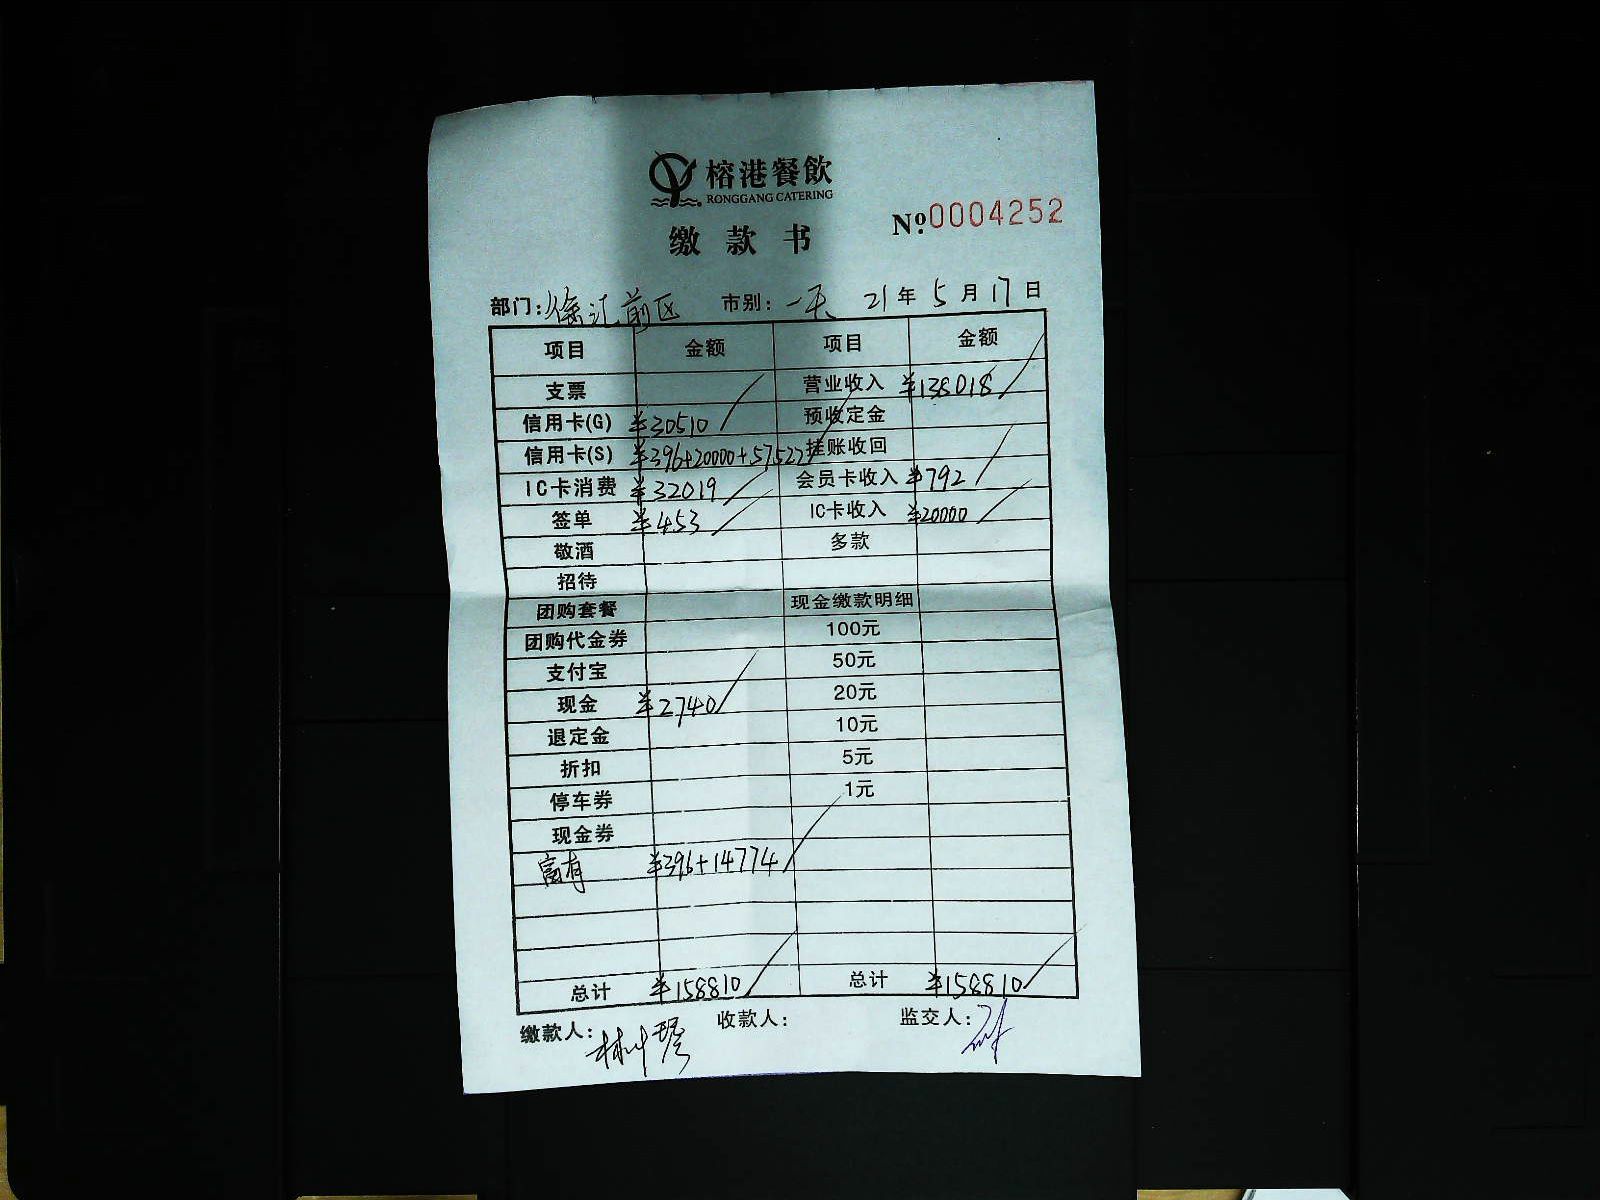 榕港餐飲
RONGGANG CATERING
缴款书
No:0004252
部门:徐汇前区 市别:一天 21年5月17日
项目 金额 项目 金额
支票 营业收入 ¥138018
信用卡(G) ¥30510 预收定金
信用卡(S) ¥396+20000+57522 挂账收回
IC卡消费 ¥32019 会员卡收入 ¥792
签单 ¥453 IC卡收入 ¥20000
敬酒 多款
招待
团购套餐 现金缴款明细
团购代金券 100元
支付宝 50元
现金 ¥2740 20元
退定金 10元
折扣 5元
停车券 1元
现金券
富有 ¥396+14774
总计 ¥158810 总计 ¥158810
缴款人: 收款人: 监交人: